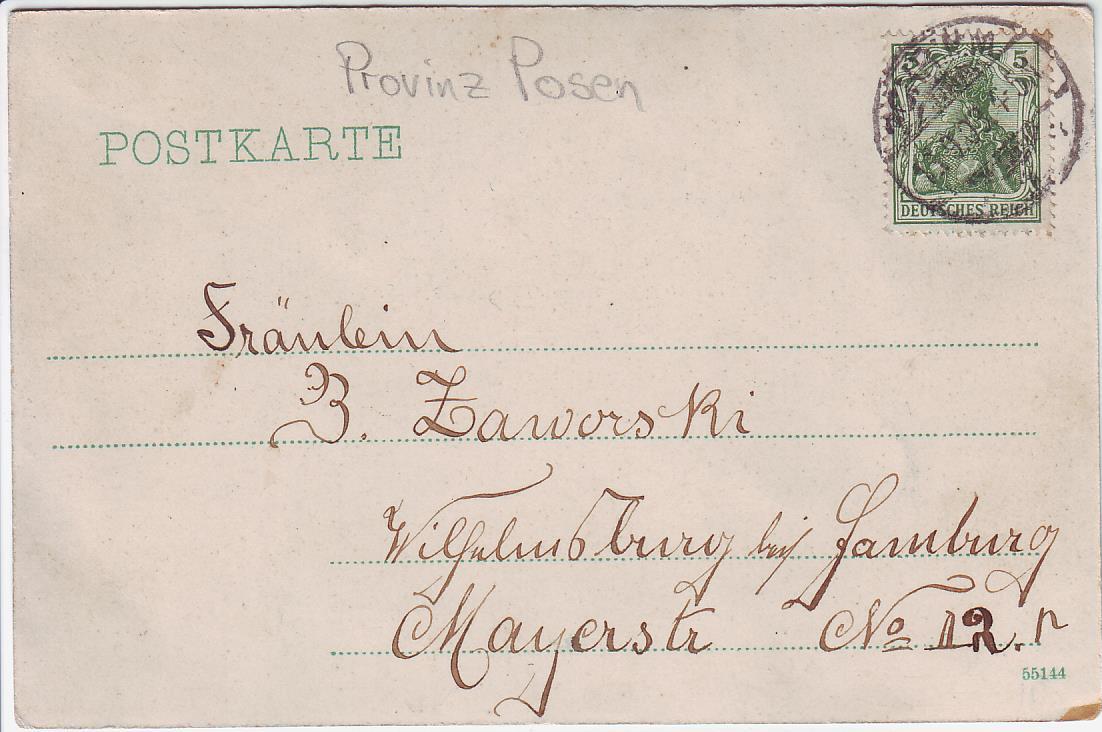 Provinz Posen
POSTKARTE
5 5
DEUTSCHES REICH
Fräulein
B. Zaworski
Wilhelmsburg bei Hamburg
Mayerstr No 12. r
55144